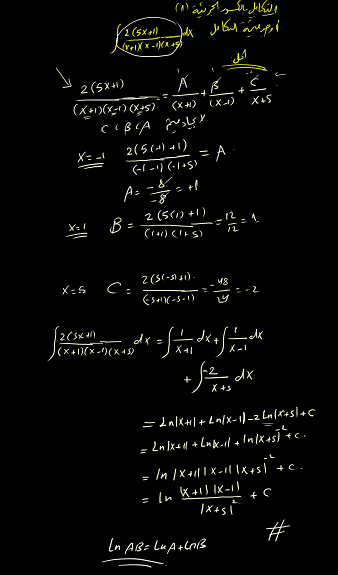 التكامل بالكسور الجزئية (٨)
أوجد قيمة التكامل ∫ 2(5x+1)/((x+1)(x-1)(x+5)) dx
2(5x+1)/((x+1)(x-1)(x+5)) = A/(x+1) + B/(x-1) + C/(x+5)
C ، B ، A
x=-1 2(5(-1)+1)/((-1-1)(-1+5)) = A
A = -8/-8 = +1
x=1 B = 2(5(1)+1)/((1+1)(1+5)) = 12/12 = 1
x=5 C = 2(5(-5)+1)/((-5+1)(-5-1)) = -48/24 = -2
∫ 2(5x+1)/((x+1)(x-1)(x+5)) dx = ∫ 1/(x+1) dx + ∫ 1/(x-1) dx
+ ∫ -2/(x+5) dx
= Ln|x+1| + Ln|x-1| -2 Ln|x+5| + C
= Ln|x+1| + Ln|x-1| + Ln|x+5|⁻² + C.
= ln |x+1| |x-1| |x+5|⁻² + C.
= ln |x+1| |x-1| / |x+5|² + C
#
Ln AB = Ln A + Ln B